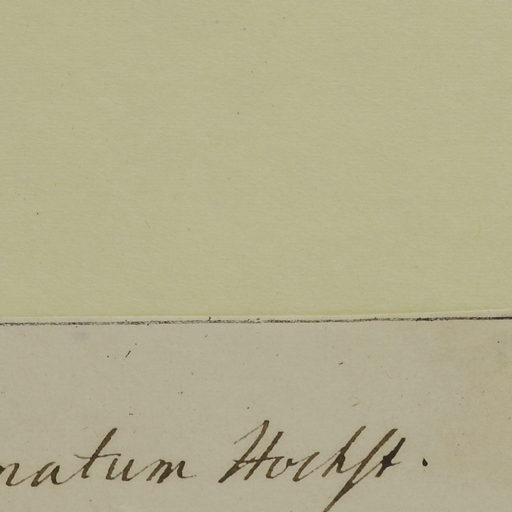 natum Hochst.